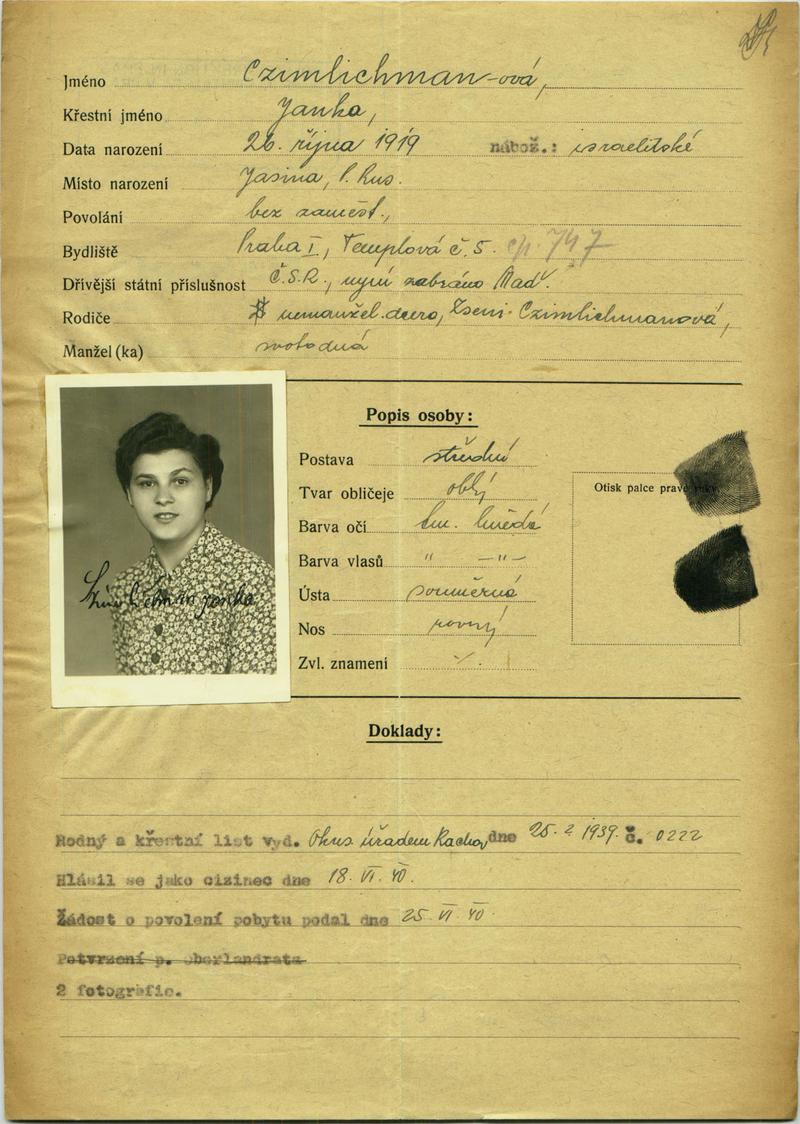 Jméno Czimlichman-ová,
Křestní jméno Janka,
Data narození 26. října 1919 nábož.: israelitské
Místo narození Jasina, P. Rus.
Povolání bez zaměst.,
Bydliště Praha I, Templová č. 5. čp. 747
Dřívější státní příslušnost Č.S.R., nyní zabráno Maď.
Rodiče nemanžel. dcera, Czimlichmanová,
Manžel (ka) svobodná
Popis osoby:
Postava střední
Tvar obličeje oblý
Barva očí tm. hnědá
Barva vlasů " —"—
Ústa souměrná
Nos rovný
Zvl. znamení ·/.
Otisk palce pravé ruky
Czimlichman Janka
Doklady:
Rodný a křestní list vyd. Okres. úřadem Rachov dne 25. 2. 1939. č. 0222
Hlásil se jako cizinec dne 18. VI. 40.
Žádost o povolení pobytu podal dne 25. VI. 40.
Potvrzení p. oberlandrata
2 fotografie.